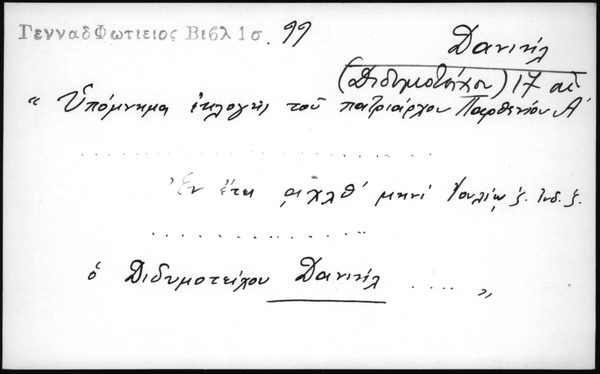 ΓενναδΦωτιειος Βιβλ 1σ. 99
Δανιήλ
(Διδυμοτείχου) 17 αἰ
“ Ὑπόμνημα ἐκλογῆς τοῦ πατριάρχου Παρθενίου Α΄
. . . . . . . . . . . . . . . . . . . . . . . . .
Ἐν ἔτει ͵αχλθ΄ μηνὶ Ἰουλίῳ ξ. Ἰνδ. ξ.
. . . . . . . . . . . . . .
ὁ Διδυμοτείχου Δανιήλ .... „